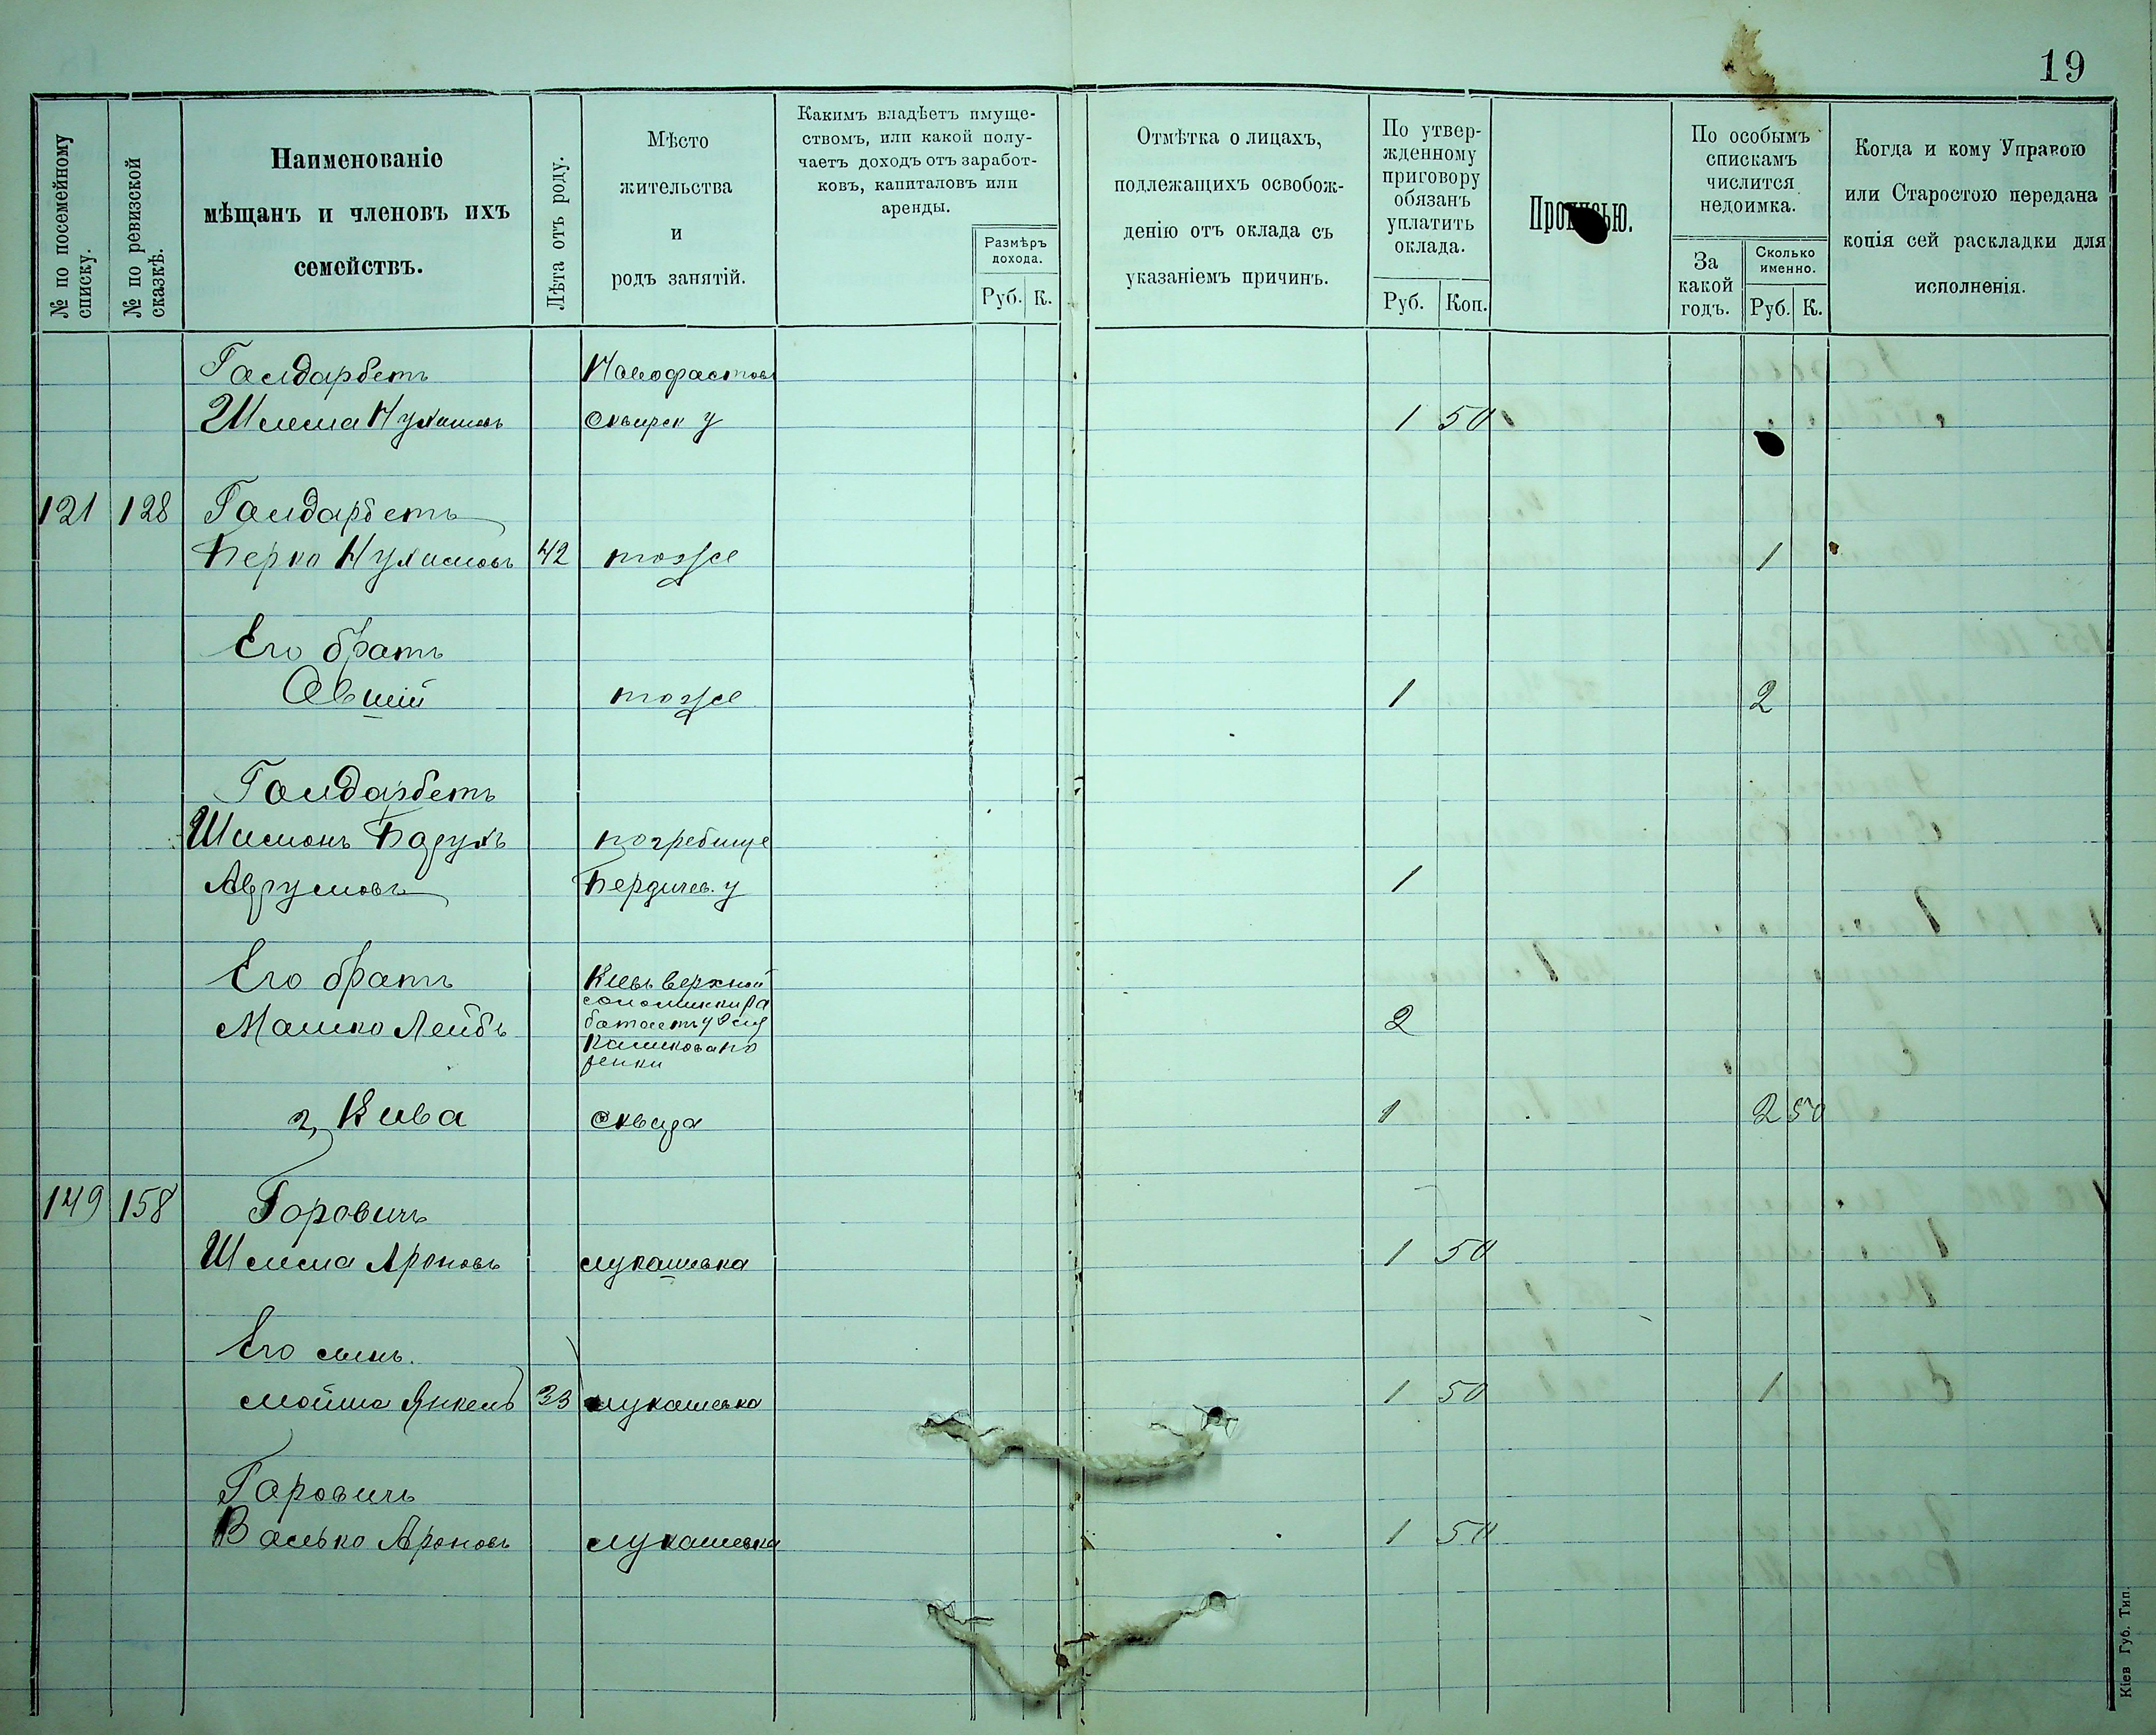 19
№ по посемейному списку.
№ по ревизской сказкѣ.
Наименованіе
мѣщанъ и членовъ ихъ
семействъ.
Лѣта отъ роду.
Мѣсто
жительства
и
родъ занятій.
Какимъ владѣетъ имуще-
ствомъ, или какой полу-
чаетъ доходъ отъ заработ-
ковъ, капиталовъ или
аренды.
Размѣръ
дохода.
Руб. К.
Отмѣтка о лицахъ,
подлежащихъ освобож-
денію отъ оклада съ
указаніемъ причинъ.
По утвер-
жденному
приговору
обязанъ
уплатить
оклада.
Руб. Коп.
Прописью.
По особымъ
спискамъ
числится
недоимка.
За
какой
годъ.
Сколько
именно.
Руб. К.
Когда и кому Управою
или Старостою передана
копія сей раскладки для
исполненія.
Галдарбетъ
Шлема Нухимовъ Сквирск у 1 50
121 128 Галдарбетъ
Берко Нухимовъ 42 тоже 1
Его братъ
Овшій тоже 1 2
Галдарбетъ
Шимонъ Барухъ погребище
Аврумовъ Бердичев. у 1
Его братъ Кіевъ верхней
Машко Лейбъ 2
2, Кива Сквира 1 2 50
149 158 Горовичъ
Шлема Ароновъ лукашевка 1 50
Его сынъ.
Мойше Янкель 33 лукашевка 1 50 1
Горовичъ
Волько Ароновъ лукашевка 1 50
Кіев Губ. Тип.